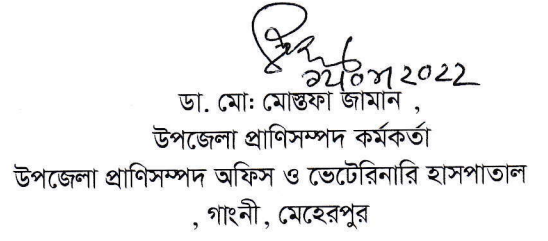 ডা. মো: মোস্তফা জামান ,
উপজেলা প্রাণিসম্পদ কর্মকর্তা
উপজেলা প্রাণিসম্পদ অফিস ও ভেটেরিনারি হাসপাতাল
, গাংনী , মেহেরপুর